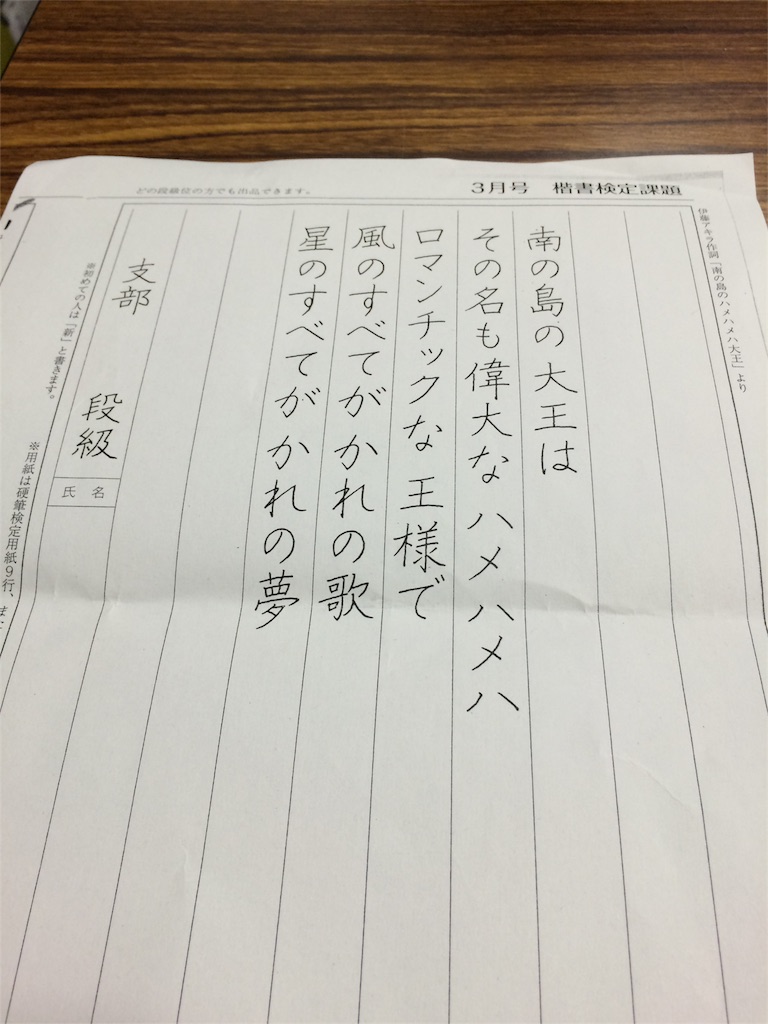 3月号 楷書検定課題
どの段級位の方でも出品できます。
伊藤アキラ作詞「南の島のハメハメハ大王」より
南の島の大王は
その名も偉大なハメハメハ
ロマンチックな王様で
風のすべてがかれの歌
星のすべてがかれの夢
支部 段級
氏名
※初めての人は「新」と書きます。
※用紙は硬筆検定用紙9行、また